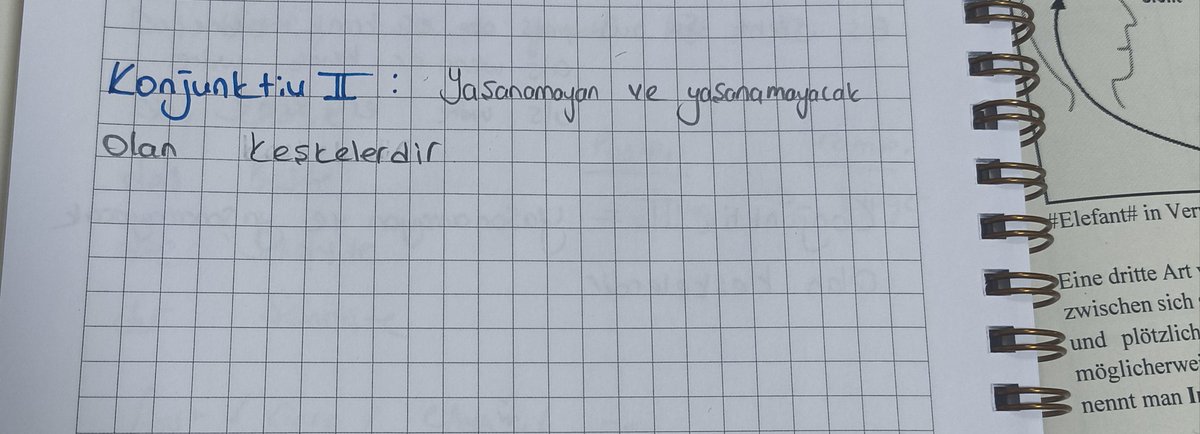 Konjunktiv II : Yasanamayan ve yasanamayacak
Olan keşkelerdir
#Elefant# in Ver
Eine dritte Art
zwischen sich
und plötzlich
möglicherwe
nennt man